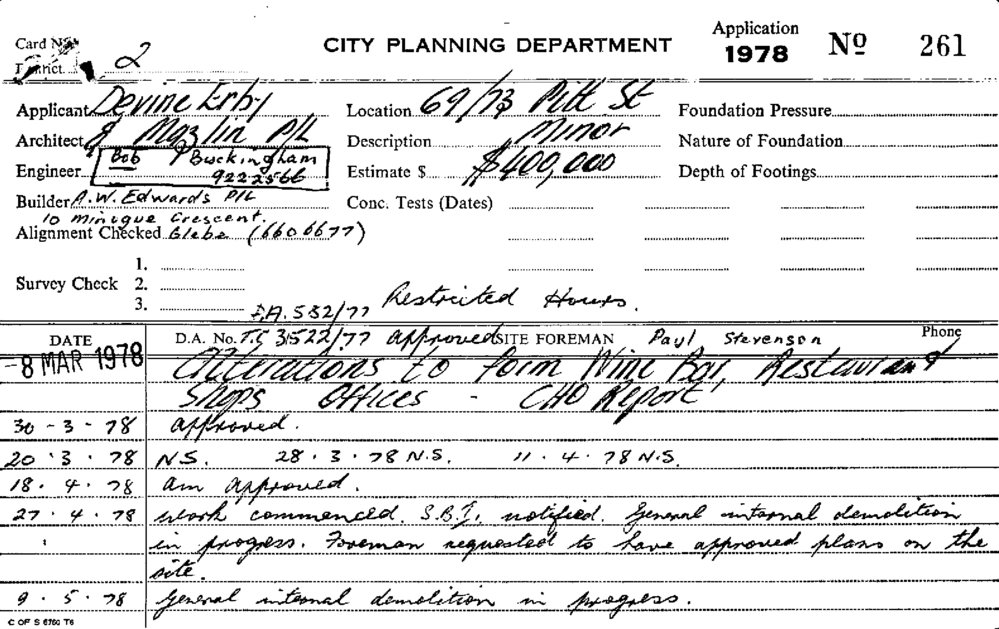 Application
Card No. 2 CITY PLANNING DEPARTMENT 1978 Nº 261
District
Applicant Devine Erby Location 69/73 Pitt St Foundation Pressure
Architect & Mazlin P/L Description Minor Nature of Foundation
Engineer Bob Buckingham Estimate $ $400,000 Depth of Footings
9222566
Builder A.W. Edwards P/L Conc. Tests (Dates)
10 Minogue Crescent.
Alignment Checked Glebe (6606677)
1.
Survey Check 2.
3. D.A. 532/77 Restricted Hours.
DATE D.A. No. T.C 3522/77 approved SITE FOREMAN Paul Stevenson Phone
-8 MAR 1978 Alterations to form Wine Bar, Restaurant
Shops Offices - CHO Report
30 - 3 - 78 approved.
20 . 3 . 78 N.S. 28 . 3 . 78 N.S. 11 . 4 . 78 N.S.
18 . 4 . 78 am approved.
27 . 4 . 78 work commenced. S.B.I. notified. General internal demolition
in progress. Foreman requested to have approved plans on the
site.
9 . 5 . 78 General internal demolition in progress.
C OF S 6760 T6